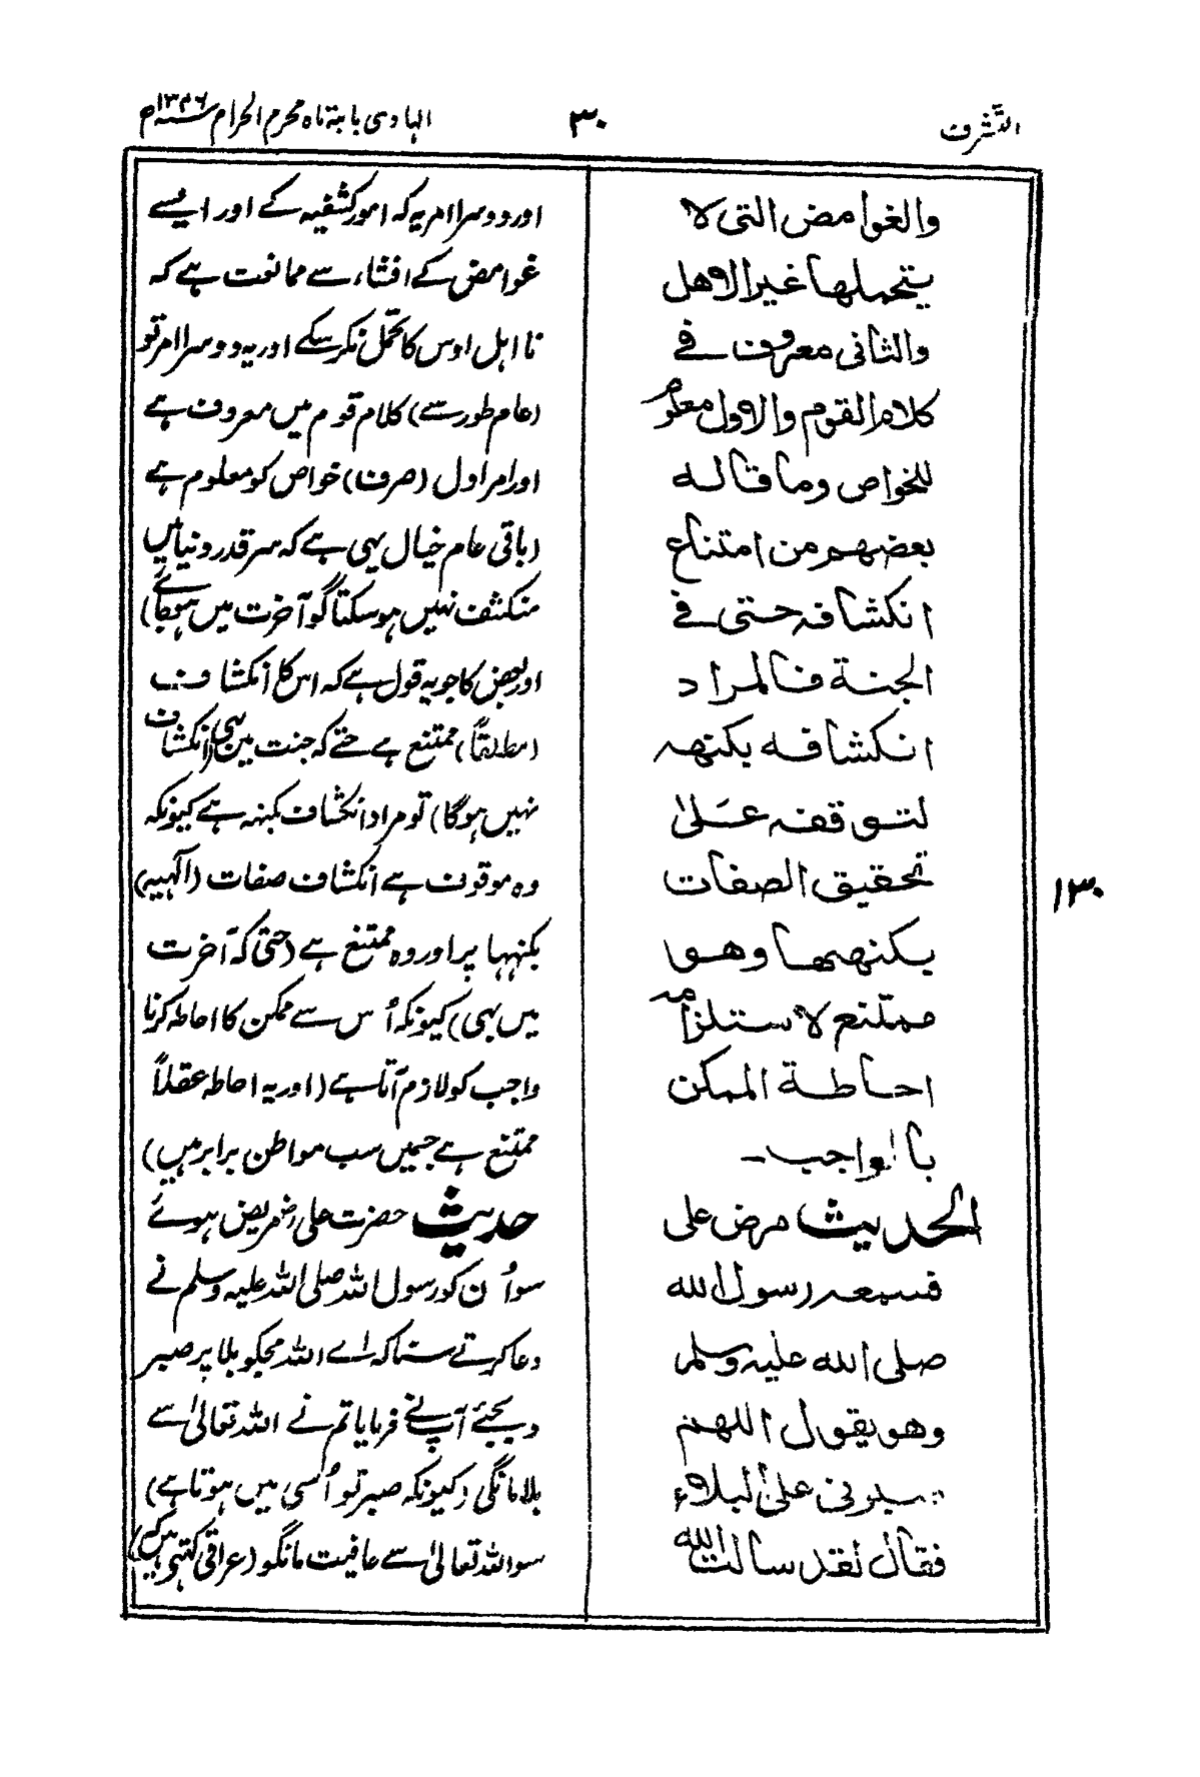 التشرف
۳۰
الہادی بابتہ ماہ محرم الحرام ۱۳۴۶ھ
والغوامض التی لا
یتحملها غیر الاهل
والثانی معروف فے
کلام القوم والاول معلوم
للخواص وما قالہ
بعضهم من امتناع
انکشافہ حتی فے
الجنة فالمراد
انکشافہ بکنهہ
لتوقفہ علیٰ
تحقیق الصفات
بکنهها وهو
ممتنع لاستلزامہ
احاطة الممکن
بالواجب۔
الحدیث مرض علی
فسمعہ رسول اللہ
صلی اللہ علیہ وسلم
وهو یقول اللهم
صبرنی علیٰ البلاء
فقال لقد سالت اللہ
۱۳۰
اور دوسرا امر یہ کہ امور کشفیہ کے اور ایسے
غوامض کے افشاء سے ممانعت ہے کہ
نااہل اوس کا تحمّل نکر سکے اور یہ دوسرا امر تو
(عام طور سے) کلام قوم میں معروف ہے
اور امر اول (صرف) خواص کو معلوم ہے
(باقی عام خیال یہی ہے کہ سر قدر دنیا میں
منکشف نہیں ہو سکتا گو آخرت میں ہو جائے گا)
اور بعض کا جو یہ قول ہے کہ اس کا انکشاف
(مطلقاً) ممتنع ہے حتے کہ جنت میں بھی (انکشاف
نہیں ہوگا) تو مراد انکشاف بکنہہ ہے کیونکہ
وہ موقوف ہے انکشاف صفات (الٰہیہ)
بکنہہا پر اور وہ ممتنع ہے (حتی کہ آخرت
میں بھی) کیونکہ اُس سے ممکن کا احاطہ کرنا
واجب کو لازم آتا ہے (اور یہ احاطہ عقلاً
ممتنع ہے جسمیں سب مواطن برابر ہیں)
حدیث حضرت علی رض مریض ہوئے
سو اُن کو رسول اللہ صلی اللہ علیہ وسلم نے
دعا کرتے سنا کہ اے اللہ مجکو بلا پر صبر
دیجئے آپ نے فرمایا تم نے اللہ تعالیٰ سے
بلا مانگی (کیونکہ صبر تو اُسی میں ہوتا ہے)
سو اللہ تعالیٰ سے عافیت مانگو (عراقی کہتے ہیں کہ)